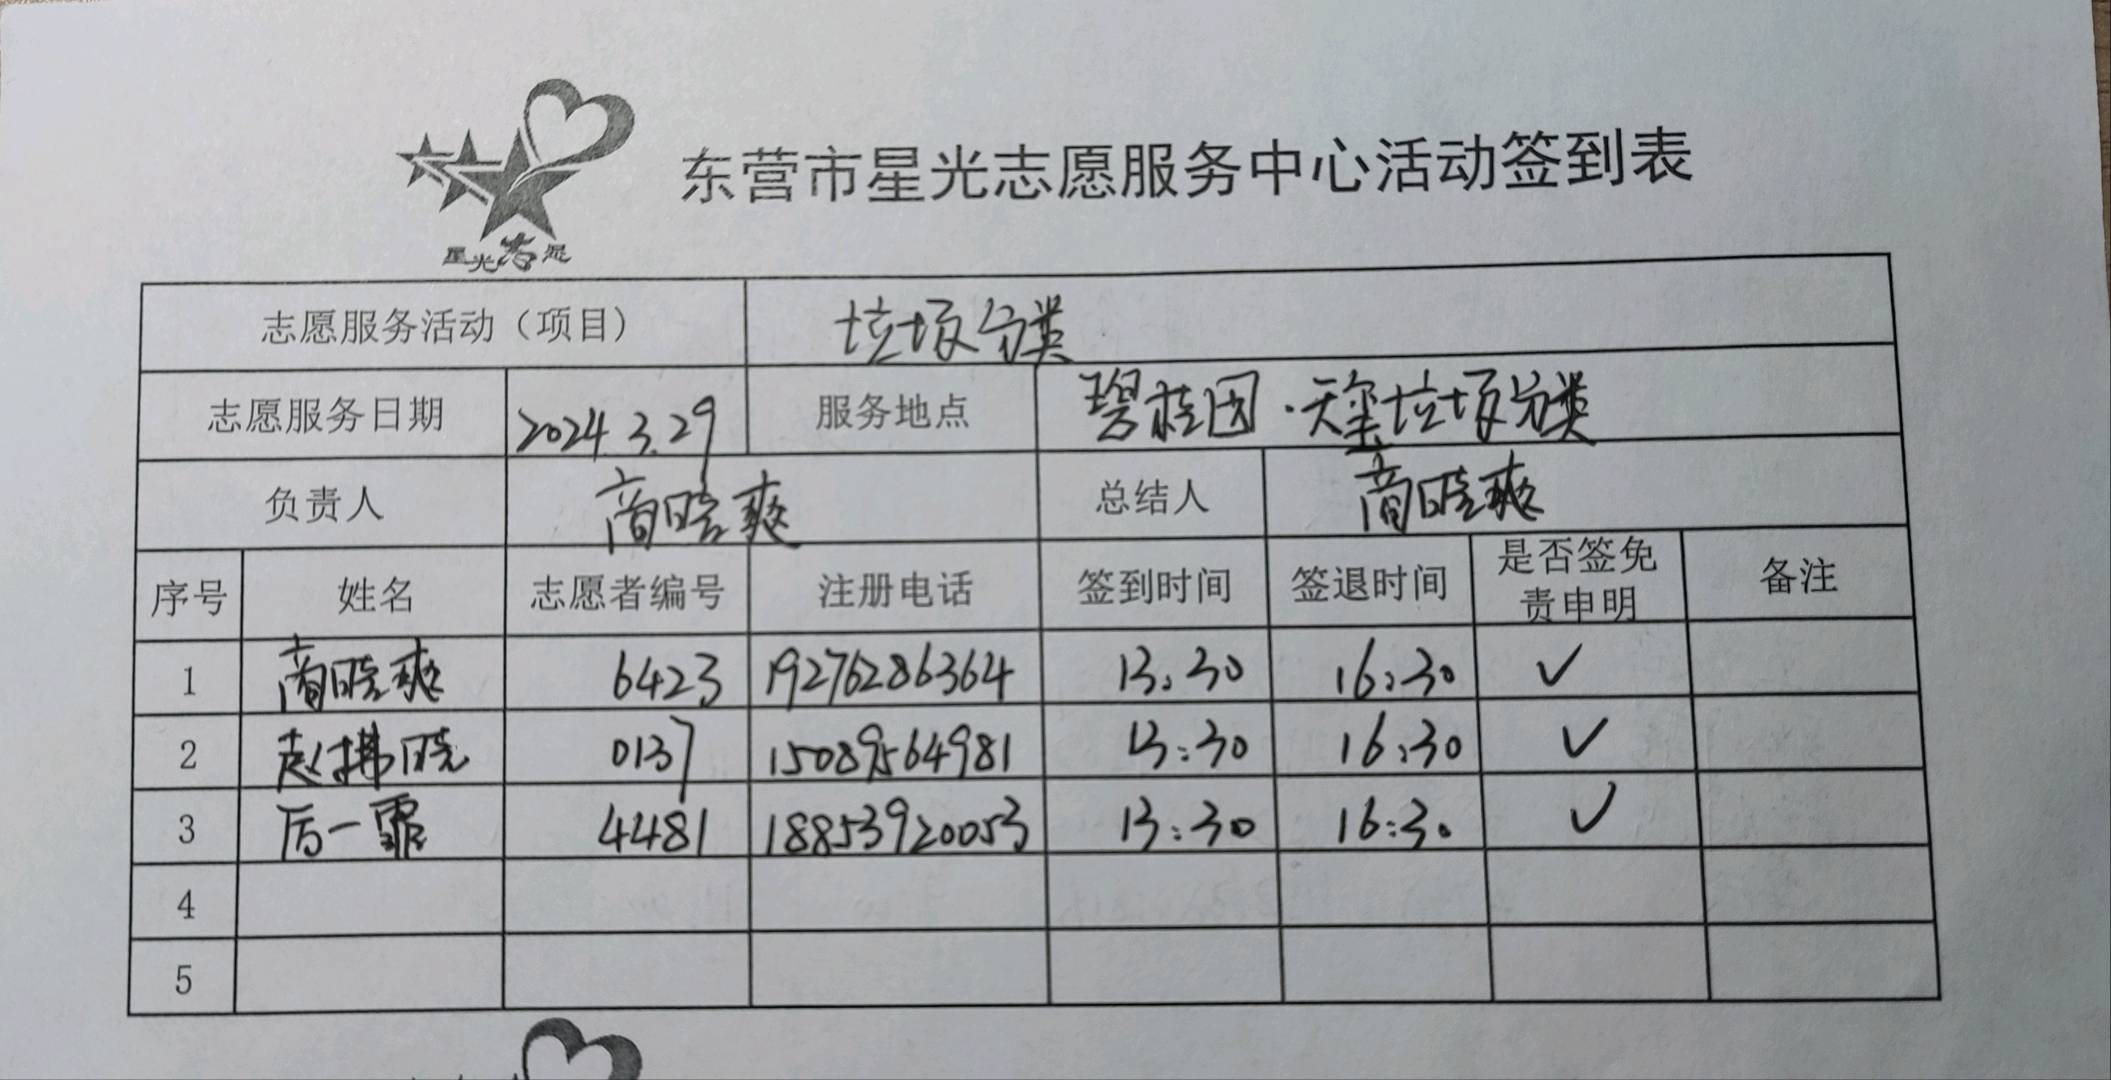 星光志愿
东营市星光志愿服务中心活动签到表
志愿服务活动（项目） 垃圾分类
志愿服务日期 2024.3.29 服务地点 碧桂园·天玺垃圾分类
负责人 商晓爽 总结人 商晓爽
序号 姓名 志愿者编号 注册电话 签到时间 签退时间 是否签免责申明 备注
1 商晓爽 6423 19276286364 13:30 16:30 ✓
2 赵拂晓 0137 15089564981 13:30 16:30 ✓
3 厉一霏 4481 18853920053 13:30 16:30 ✓
4
5